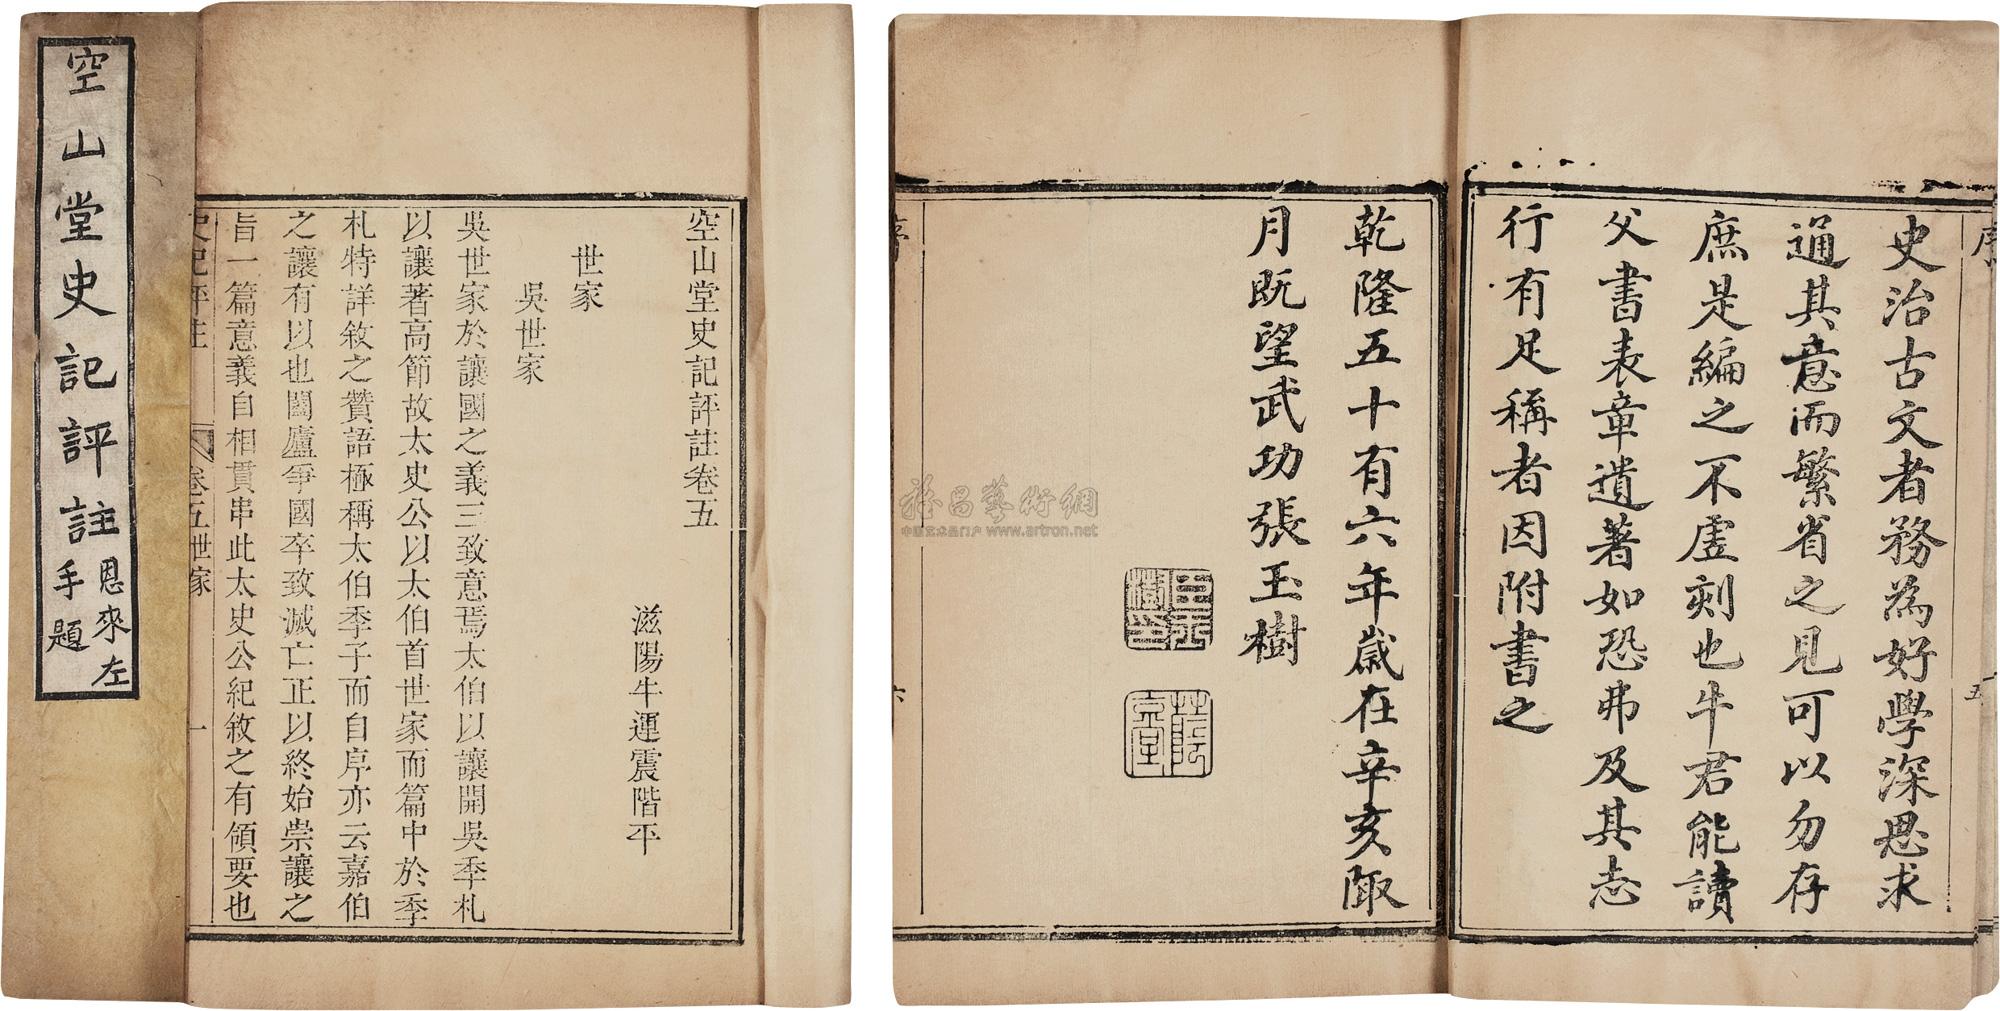 空山堂史記評註
恩來左
手題
空山堂史記評註卷五
滋陽牛運震階平
世家
吳世家
吳世家於讓國之義三致意焉太伯以讓開吳季札
以讓著高節故太史公以太伯首世家而篇中於季
札特詳敘之贊語極稱太伯季子而自序亦云嘉伯
之讓有以也闔廬爭國卒致滅亡正以終始崇讓之
旨一篇意義自相貫串此太史公紀敘之有領要也
史記評註 卷五世家 一
序 五
史治古文者務為好學深思求
通其意而繁省之見可以勿存
庶是編之不虛刻也牛君能讀
父書表章遺著如恐弗及其志
行有足稱者因附書之
乾隆五十有六年歲在辛亥陬
月既望武功張玉樹
序 六
雅昌藝術網
中国艺术品门户 www.artron.net